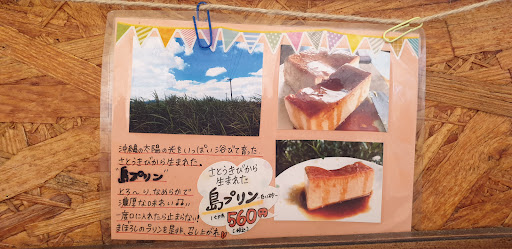 沖縄の太陽の光をいっぱい浴びて育った
さとうきびから生まれた。
島プリン
とろ〜り、なめらかで
濃厚な味わい
一度口に入れたら止まらない!
まぼろしのプリンを是非、召し上がれ
さとうきびから
生まれた
島プリン
560円
(税込)